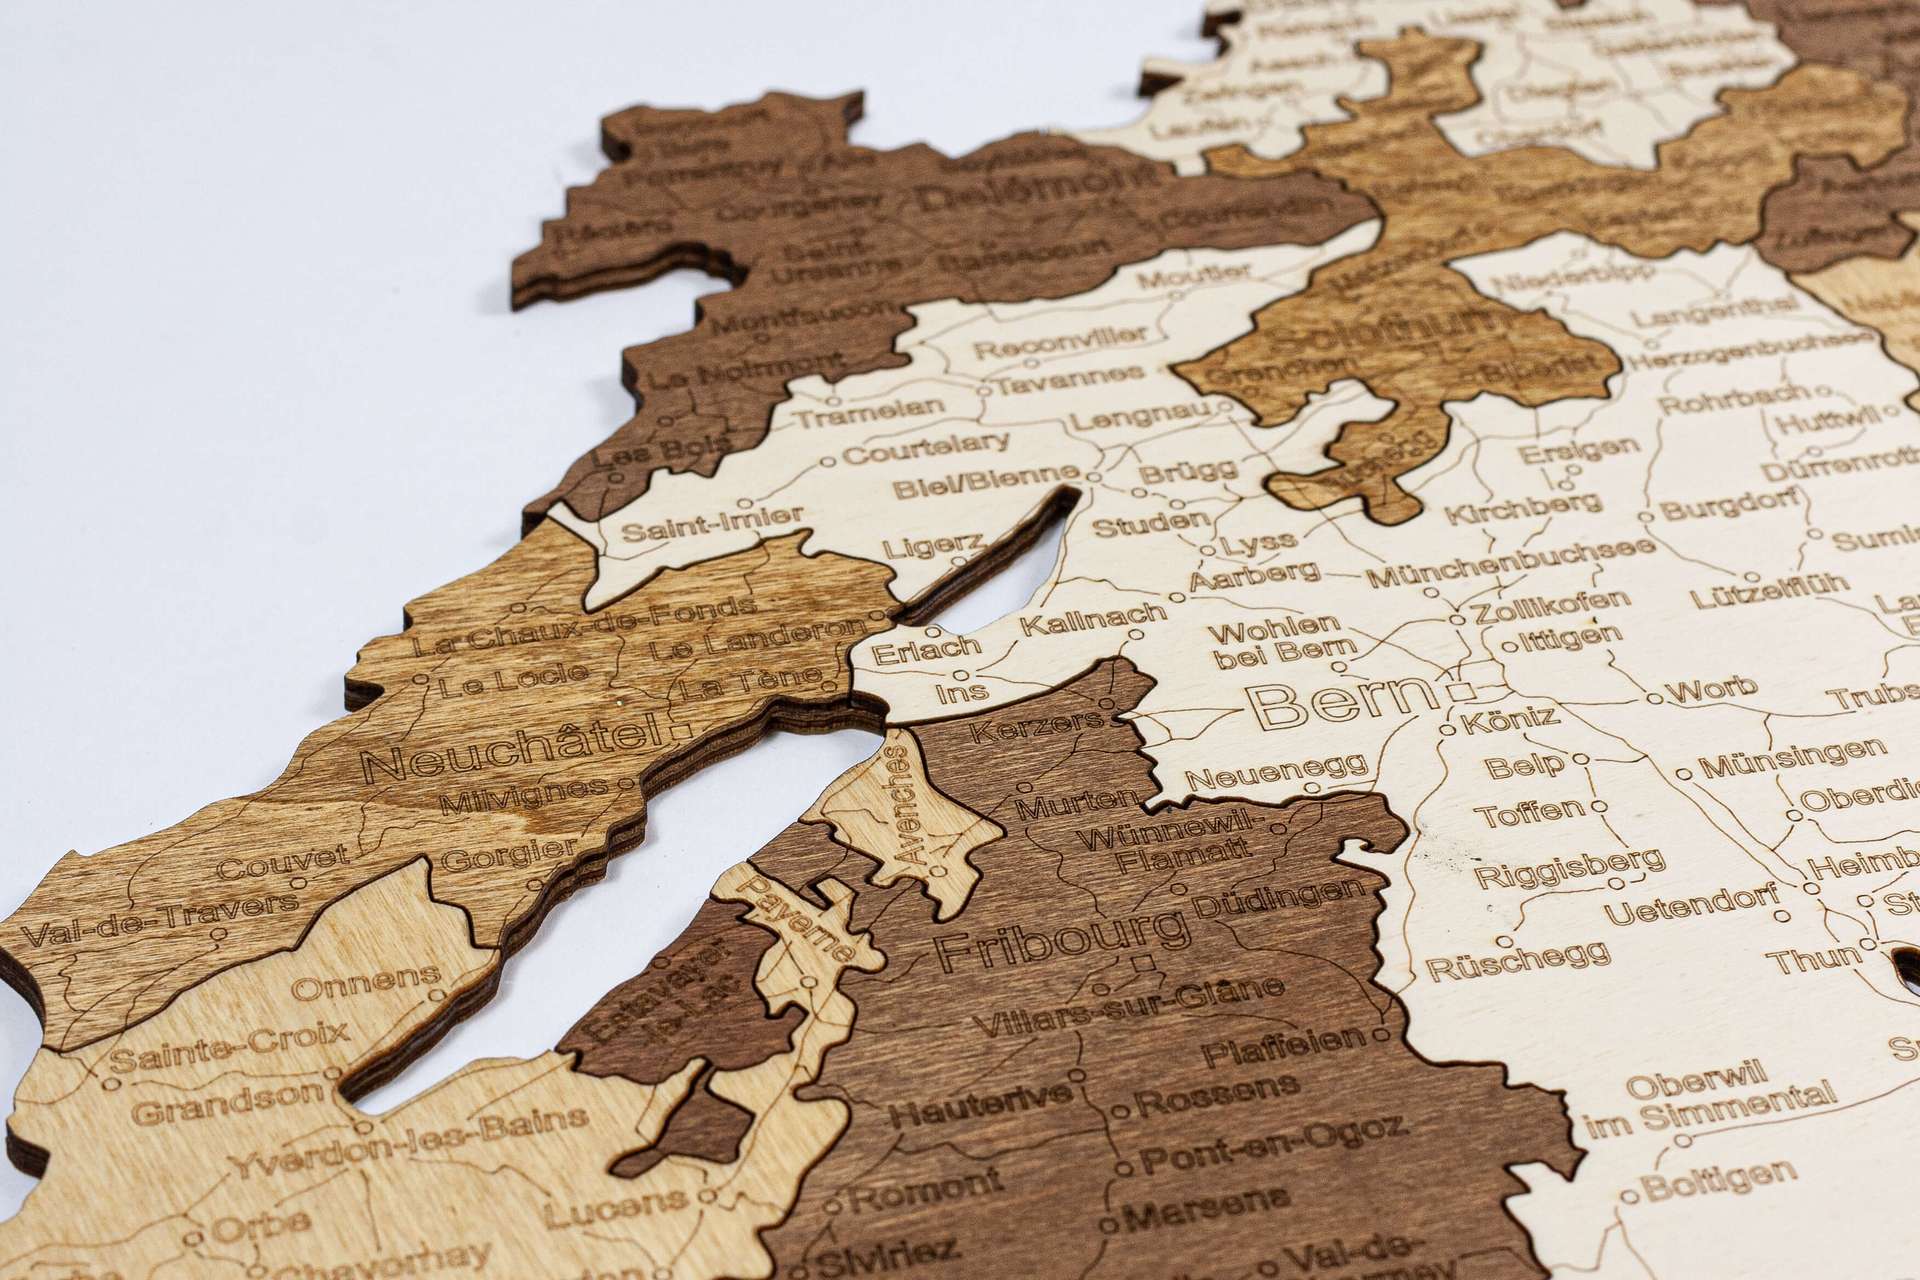 Zwingen
Laufen
Aesch
Diegten
Oberdorf
Porrentruy
Courgenay
Delémont
Courrendlin
Saint-
Ursanne
Bassecourt
Montfaucon
Le Noirmont
Les Bois
Moutier
Reconvilier
Tavannes
Tramelan
Lengnau
Courtelary
Biel/Bienne
Brügg
Saint-Imier
Studen
Ligerz
Lyss
Aarberg
Solothurn
Grenchen
Biberist
Niederbipp
Langenthal
Herzogenbuchsee
Rohrbach
Huttwil
Ersigen
Dürrenroth
Kirchberg
Burgdorf
Münchenbuchsee
Lützelflüh
Zollikofen
Ittigen
Kallnach
Wohlen
bei Bern
Erlach
Ins
Bern
Worb
Köniz
La Chaux-de-Fonds
Le Landeron
Le Locle
La Tène
Neuchâtel
Milvignes
Kerzers
Neuenegg
Belp
Münsingen
Toffen
Avenches
Murten
Wünnewil-
Flamatt
Couvet
Gorgier
Val-de-Travers
Payerne
Düdingen
Riggisberg
Uetendorf
Fribourg
Rüschegg
Thun
Onnens
Estavayer-
le-Lac
Villars-sur-Glâne
Sainte-Croix
Plaffeien
Grandson
Hauterive
Rossens
Oberwil
im Simmental
Yverdon-les-Bains
Pont-en-Ogoz
Lucens
Romont
Marsens
Boltigen
Orbe
Chavornay
Siviriez
Val-de-